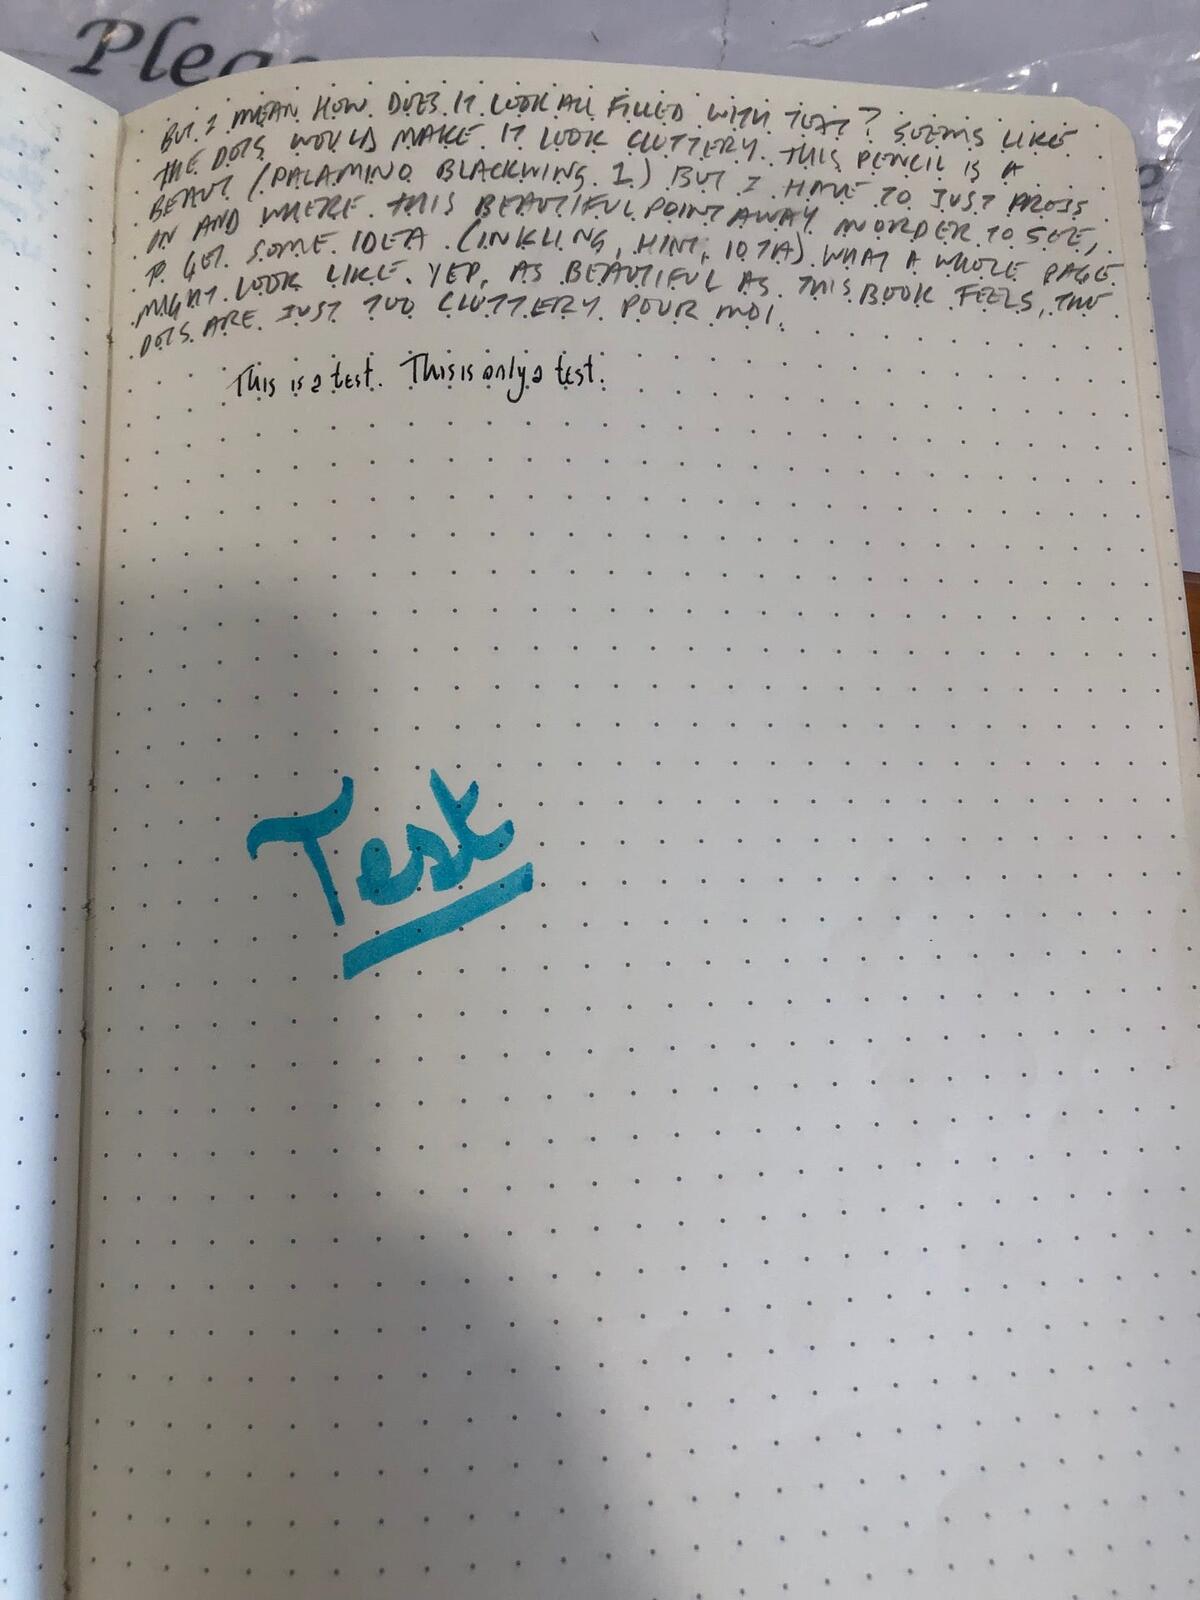 Pleas
BUT I MEAN HOW DOES IT LOOK ALL FILLED WITH TEXT? SEEMS LIKE
THE DOTS WOULD MAKE IT LOOK CLUTTERY. THIS PENCIL IS A
BEAUT (PALAMINO BLACKWING 1) BUT I HAVE TO JUST PRESS
ON AND WHERE THIS BEAUTIFUL POINT AWAY IN ORDER TO SEE,
TO GET SOME IDEA (INKLING, HINT, IOTA) WHAT A WHOLE PAGE
MIGHT LOOK LIKE. YEP, AS BEAUTIFUL AS THIS BOOK FEELS, THE
DOTS ARE JUST TOO CLUTTERY POUR MOI.
This is a test. This is only a test.
Test